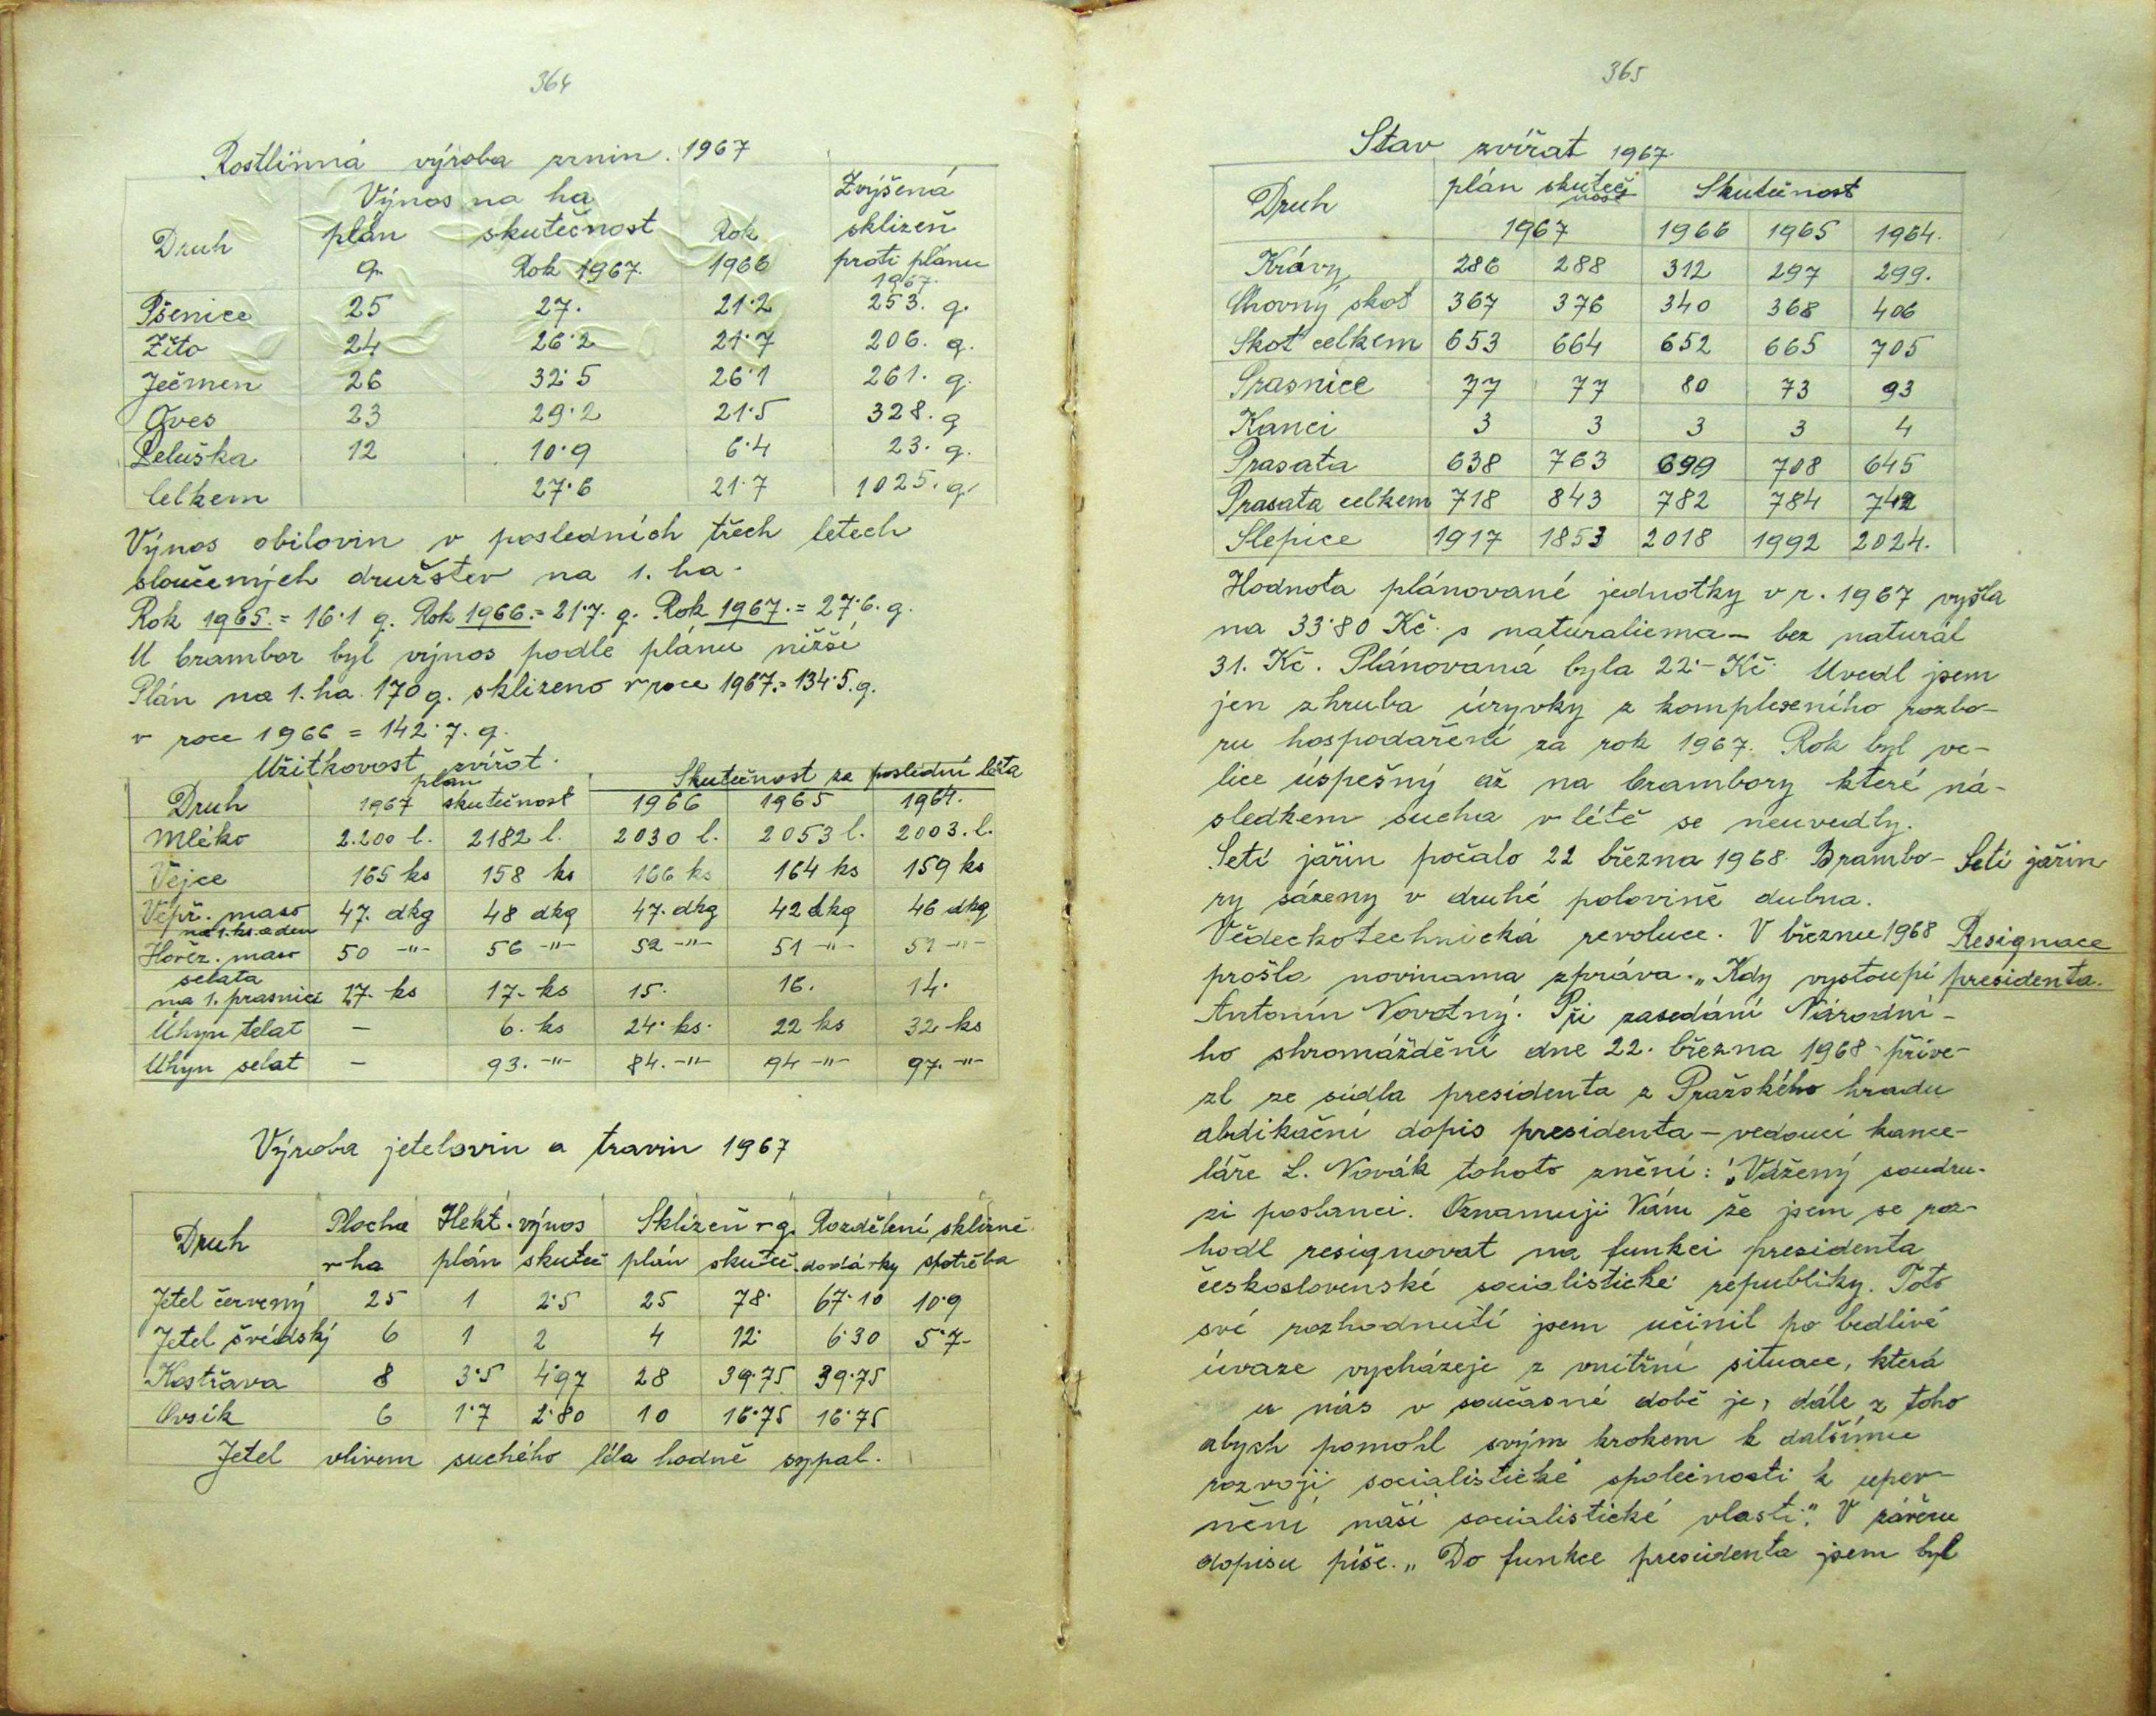 364
Rostlinná výroba zrnin. 1967
Výnos na ha Zvýšená
Druh plán skutečnost Rok sklizeň
q. Rok 1967. 1966 proti plánu
1967.
Pšenice 25 27. 21·2 253. q.
Žito 24 26·2 21·7 206. q.
Ječmen 26 32·5 26·1 261. q.
Oves 23 29·2 21·5 328. q
Peluška 12 10·9 6·4 23. q.
Celkem 27·6 21·7 1025. q.
Výnos obilovin v posledních třech letech
sloučených družstev na 1. ha.
Rok 1965. = 16·1 q. Rok 1966. = 21·7. q. Rok 1967. = 27·6. q.
U brambor byl výnos podle plánu nižší
Plán na 1. ha. 170 q. sklizeno v roce 1967. = 134·5. q.
v roce 1966 = 142·7. q.
Užitkovost zvířat.
plán Skutečnost za poslední léta
Druh 1967 skutečnost 1966 1965 1964.
Mléko 2.200 l. 2182 l. 2030 l. 2053 l. 2003. l.
Vejce 165 ks 158 ks 166 ks 164 ks 159 ks
Vepř. maso 47. dkg 48 dkg 47. dkg 42 dkg 46 dkg
na 1. ks. a den
Hověz. maso 50 -"- 56 -"- 52 -"- 51 -"- 51 -"-
selata
na 1. prasnici 17. ks 17. ks 15. 16. 14.
Úhyn telat — 6. ks 24. ks. 22 ks 32 ks
Uhyn selat — 93. -"- 84. -"- 94 -"- 97. -"-
Výroba jetelovin a travin 1967
Druh Plocha Hekt. výnos Sklizeň v q. Rozdělení sklizně
v ha plán skuteč plán skuteč. dodávky spotřeba
Jetel červený 25 1 2·5 25 78· 67·10 10·9
Jetel švédský 6 1 2 4 12· 6·30 5·7-
Kostřava 8 3·5 4·97 28 39·75 39·75
Ovsík 6 1·7 2·80 10 16·75 16·75
Jetel vlivem suchého léta hodně sypal.
365
Stav zvířat 1967.
Druh plán skuteč Skutečnost
nost
1967 1966 1965 1964.
Krávy 286 288 312 297 299.
Chovný skot 367 376 340 368 406
Skot celkem 653 664 652 665 705
Prasnice 77 77 80 73 93
Kanci 3 3 3 3 4
Prasata 638 763 699 708 645
Prasata celkem 718 843 782 784 742
Slepice 1917 1853 2018 1992 2024.
Hodnota plánované jednotky v r. 1967 vyšla
na 33·80 Kč. s naturaliema - bez naturál
31. Kč. Plánovaná byla 22·- Kč. Uvedl jsem
jen zhruba úryvky z komplexního rozbo-
ru hospodaření za rok 1967. Rok byl ve-
lice úspešný až na brambory které ná-
sledkem sucha v létě se neuvedly.
Setí jařin počalo 22 března 1968. Brambo- Setí jařin
ry sázeny v druhé polovině dubna.
Vědeckotechnická revoluce. V březnu 1968 Resignace
prošla novinama zpráva. „Kdy vystoupí presidenta.
Antonín Novotný. Při zasedání Národní-
ho shromáždění dne 22. března 1968 - přive-
zl ze sídla presidenta z Pražského hradu
abdikační dopis presidenta - vedoucí kance-
láře L. Novák tohoto znění: „Vážený soudru-
zi poslanci. Oznamuji Vám že jsem se roz-
hodl resignovat na funkci presidenta
československé socialistické republiky. Toto
své rozhodnutí jsem učinil po bedlivé
úvaze vycházeje z vnitřní situace, která
u nás v současné době je, dále z toho
abych pomohl svým krokem k dalšímu
rozvoji socialistické společnosti k upev-
nění naší socialistické vlasti." V závěru
dopisu píše. „Do funkce presidenta jsem byl